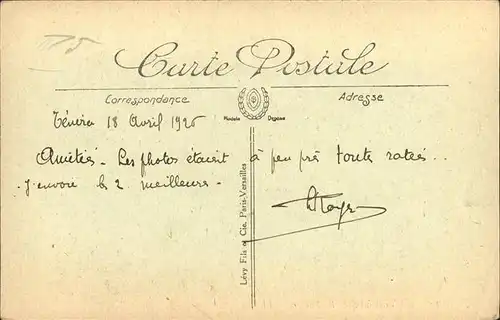 75
Carte Postale
Correspondance
Adresse
Modèle Déposé
18 Avril 1926
Amitiés - Les photos étaient à peu près toute ratées..
- J'envoie les 2 meilleures -
Lévy Fils et Cie, Paris-Versailles